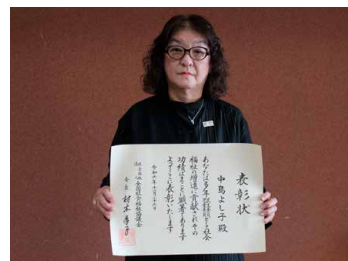 表彰状
中島よし子 殿
あなたは多年
社会
福祉の増進に貢献されその
功績はまことに顕著であります
よってここに表彰いたします
令和六年十一月
全国社会福祉協議会
会長 村木厚子